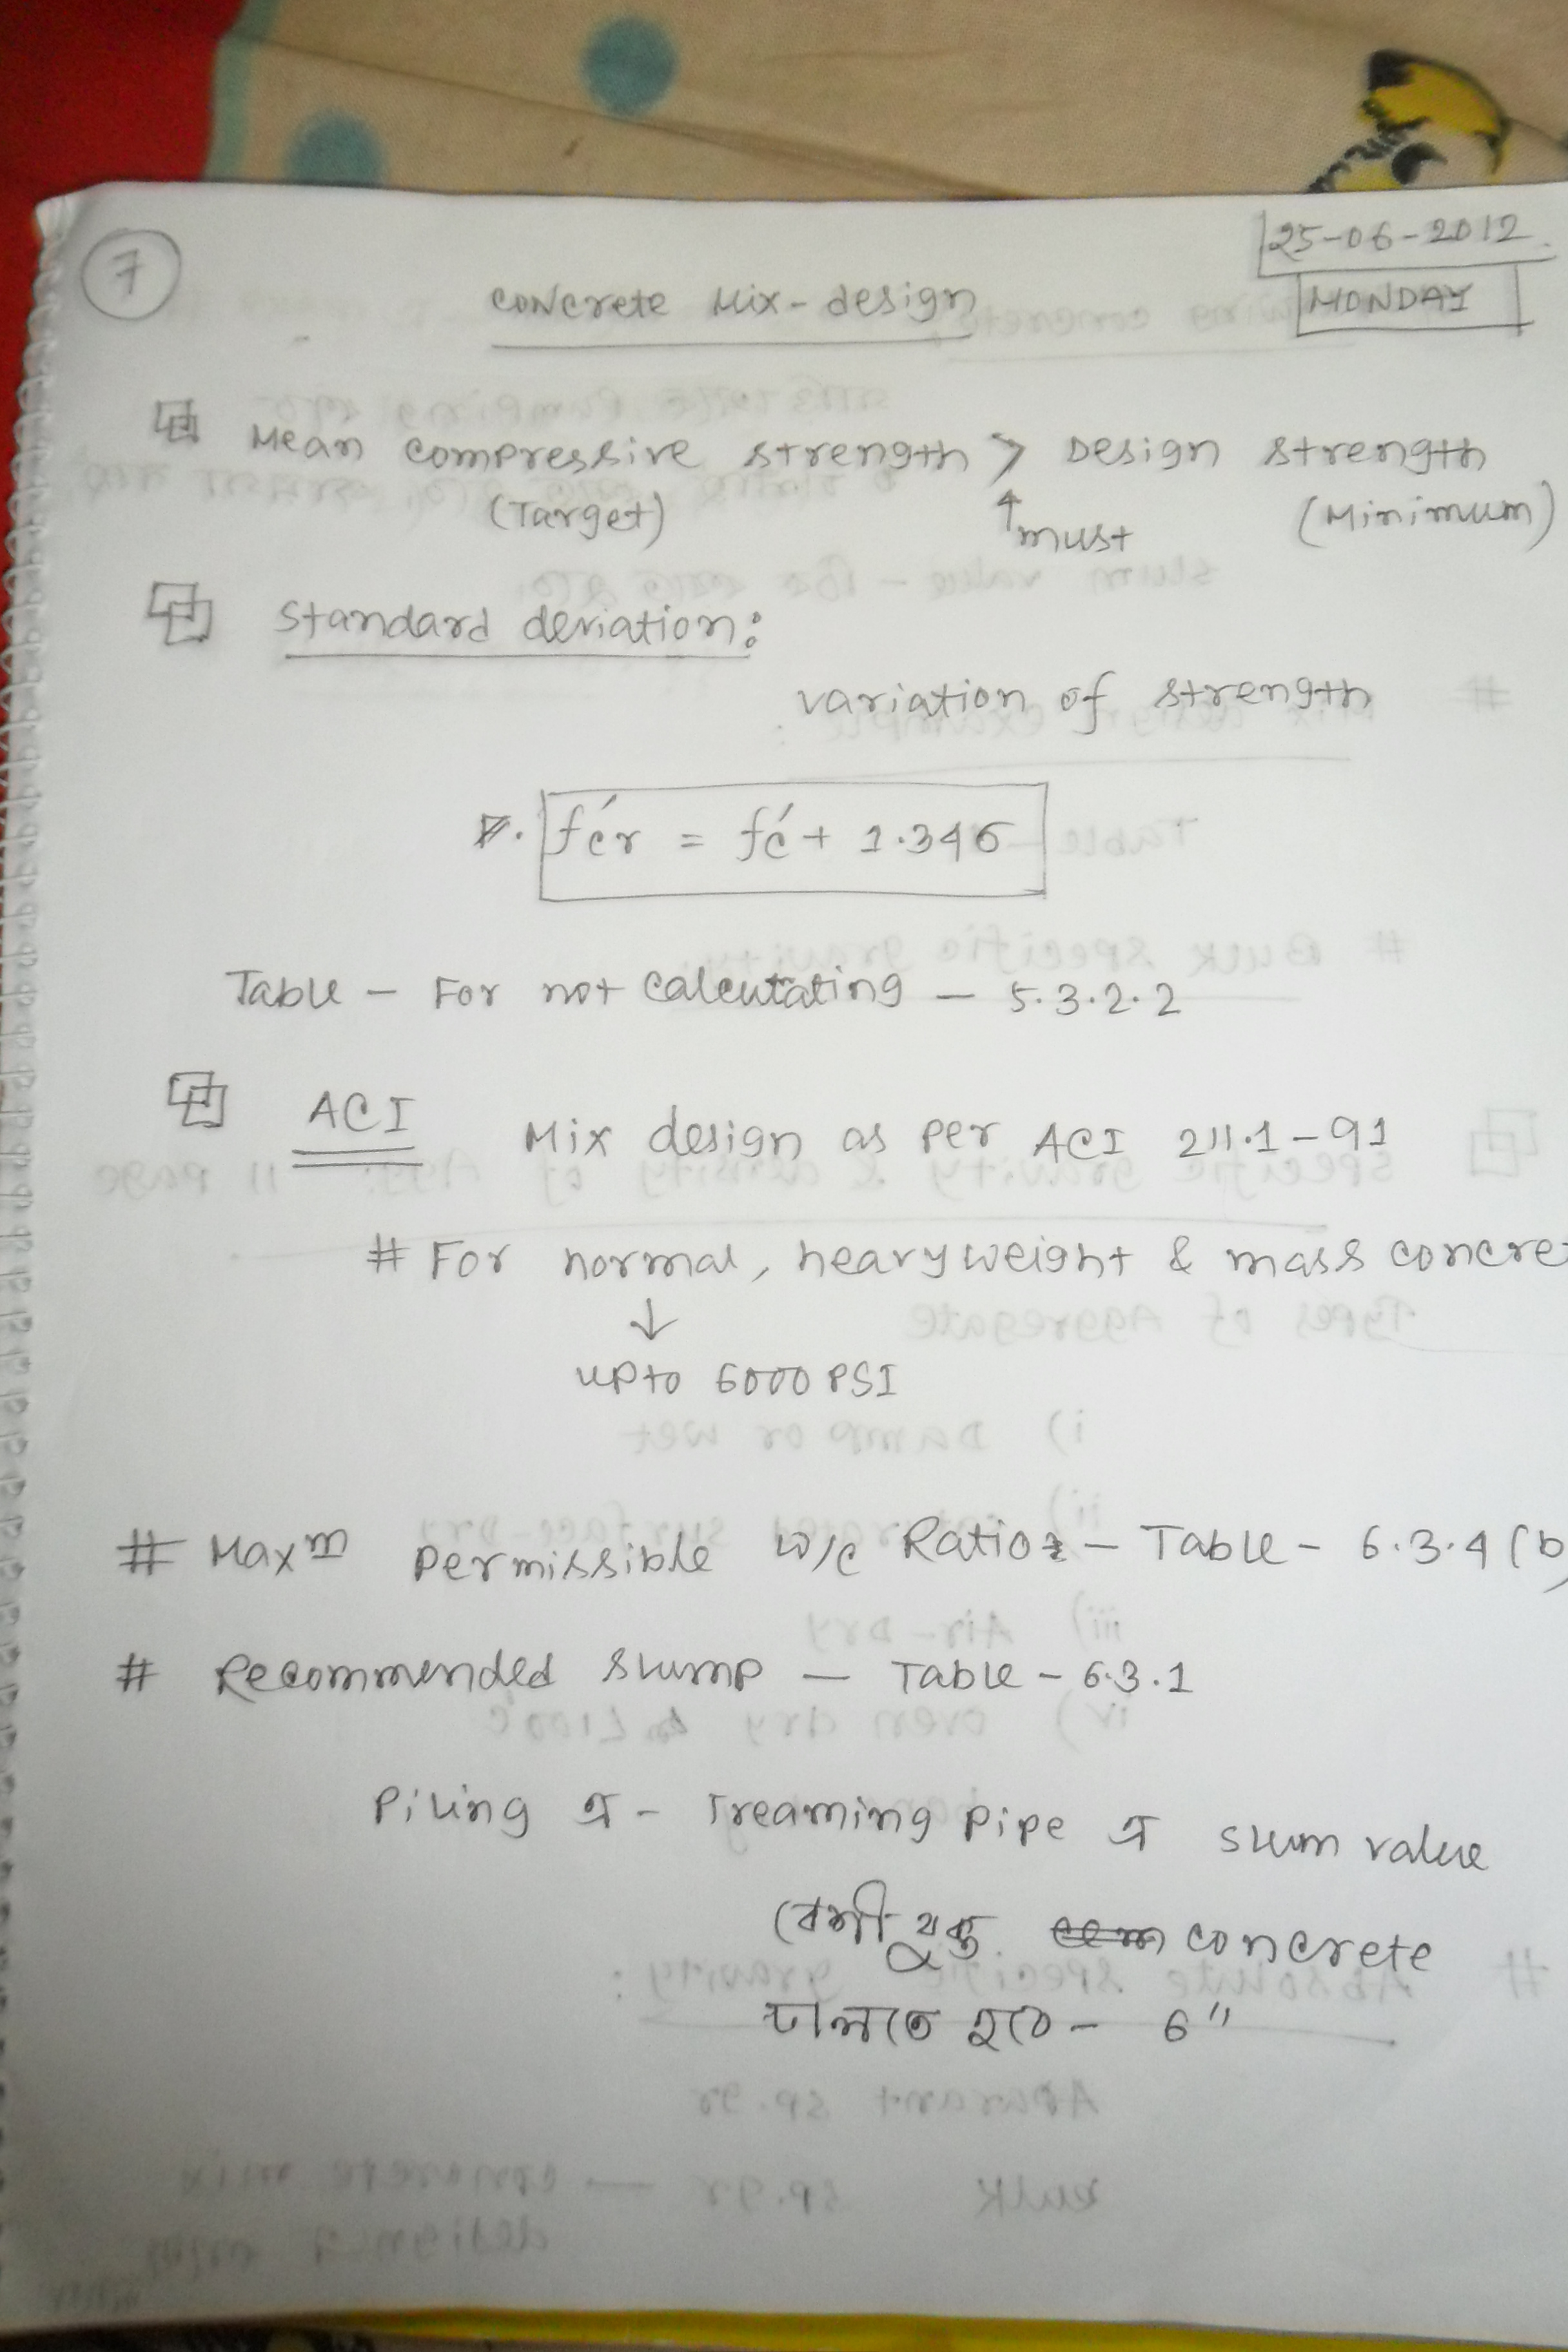 7
25-06-2012
MONDAY
Concrete Mix-design
Mean compressive strength > Design strength
(Target) ↑ must (Minimum)
Standard deviation:
variation of strength
f'cr = f'c + 1.34б
Table - For not Calculating - 5.3.2.2
ACI Mix design as per ACI 211.1-91
# For normal, heavyweight & mass concre
↓
upto 6000 PSI
# Max^m permissible w/c Ratio - Table - 6.3.4 (b)
# Recommended slump - Table - 6.3.1
Piling এ - Treaming pipe এ slum value
বেশী যুক্ত concrete
ঢালতে হবে - 6"